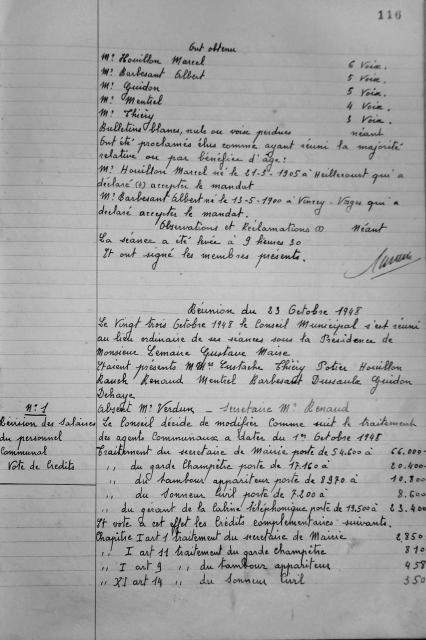 116
Ont obtenu
Mr Houillon Marcel 6 Voix.
Mr Barbesant Albert 5 Voix.
Mr Guidon 5 Voix.
Mr Mentiel 4 Voix.
Mr Thiéry 3 Voix.
Bulletins blancs, nuls ou voix perdues néant
Ont été proclamés élus comme ayant réuni la majorité
relative, ou par bénéfice d'âge:
Mr Houillon Marcel né le 21-5-1905 à Heillecourt qui a
déclaré accepter le mandat
Mr Barbesant Albert né le 13-5-1900 à Vincey - Vosges qui a
declaré accepter le mandat.
Observations et Réclamations Néant
La séance a été levée à 9 heures 30
Et ont signé les membres présents.
Réunion du 23 Octobre 1948
Le Vingt trois Octobre 1948 le Conseil Municipal s'est réuni
au lieu ordinaire de ses séances sous la Présidence de
Monsieur Lemaire Gustave Maire
Etaient présents MMrs Eustache Thiéry Potier Houillon
Rauch Renaud Mentiel Barbesant Dussaulx Guidon
Dehaye
Absent Mr Verdun - Secrétaire Mr Renaud
N°1
Révision des Salaires
du personnel
Communal
Vote de Crédits
Le Conseil décide de modifier comme suit le traitement
des agents Communaux a dater du 1er Octobre 1948
Traitement du secretaire de Mairie porte de 54.600 à 66.000
,, du garde Champêtre porte de 17.160 à 20.400
,, du tambour appariteur porte de 8970 à 10.800
,, du Sonneur Civil porte de 7.200 à 8.600
,, du gérant de la Cabine téléphonique porte de 19.500 à 23.400
Et vote à cet effet les Crédits complémentaires suivants.
Chapitre I art 1 traitement du secretaire de Mairie 2,850
,, I art 11 traitement du garde champêtre 810
,, I art 9 ,, du tambour appariteur 458
,, XI art 14 ,, du Sonneur Civil 350